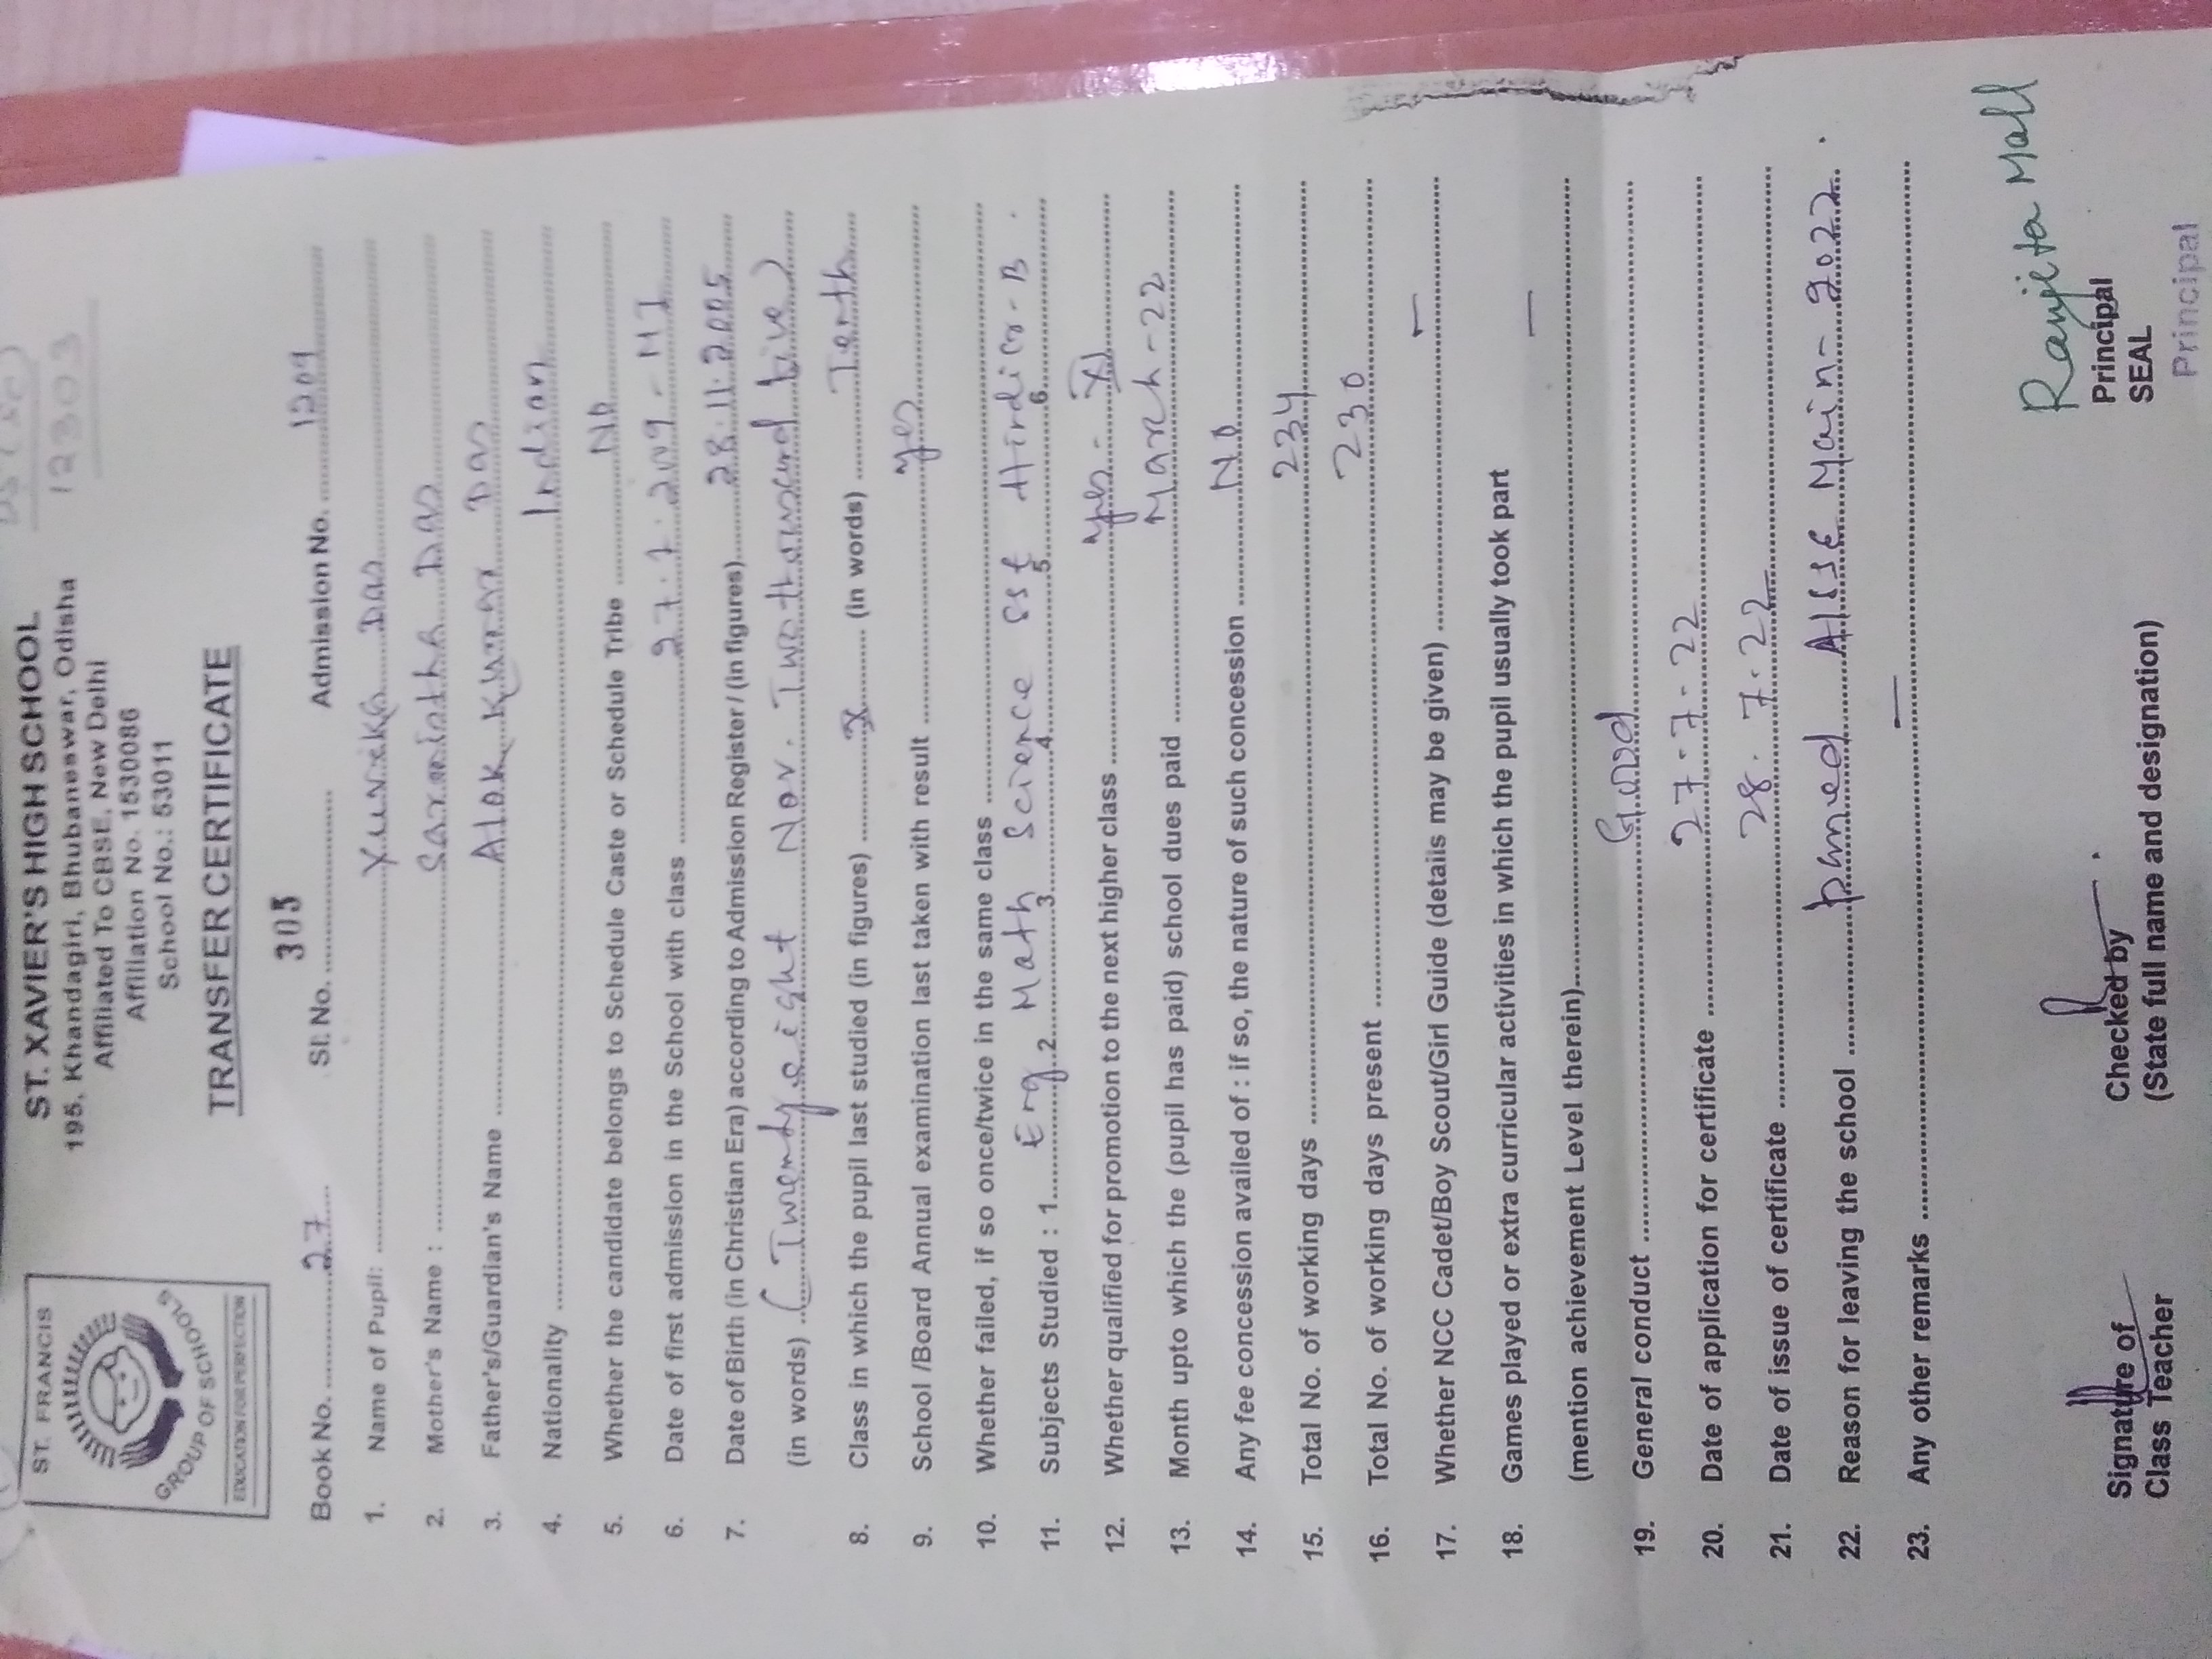 ST. FRANCIS
GROUP OF SCHOOLS
EDUCATION FOR PERFECTION
12303
ST. XAVIER'S HIGH SCHOOL
195, Khandagiri, Bhubaneswar, Odisha
Affiliated To CBSE, New Delhi
Affiliation No. 1530086
School No.: 53011
TRANSFER CERTIFICATE
Book No. 27 Sl. No. 305 Admission No. 1209
1. Name of Pupil: Yuvika Das
2. Mother's Name : Sarmistha Das
3. Father's/Guardian's Name Alok Kumar Das
4. Nationality Indian
5. Whether the candidate belongs to Schedule Caste or Schedule Tribe No
6. Date of first admission in the School with class 27.7.2009 -
7. Date of Birth (in Christian Era) according to Admission Register / (in figures) 28.11.2005
(in words) (Twenty eight Nov. Two thousand five)
8. Class in which the pupil last studied (in figures) X (in words) Tenth
9. School /Board Annual examination last taken with result yes
10. Whether failed, if so once/twice in the same class
11. Subjects Studied : 1 Eng 2 Math 3 Science 4 SST 5 Hindi Cr-B 6
12. Whether qualified for promotion to the next higher class yes - XI
13. Month upto which the (pupil has paid) school dues paid March-22
14. Any fee concession availed of : if so, the nature of such concession No
15. Total No. of working days 234
16. Total No. of working days present 230
17. Whether NCC Cadet/Boy Scout/Girl Guide (details may be given) —
18. Games played or extra curricular activities in which the pupil usually took part —
(mention achievement Level therein)
19. General conduct Good
20. Date of application for certificate 27-7-22
21. Date of issue of certificate 28.7.22
22. Reason for leaving the school passed AISSE Main-2022.
23. Any other remarks —
Ranjeta Mall
Signature of
Class Teacher
Checked by
(State full name and designation)
Principal
SEAL
Principal